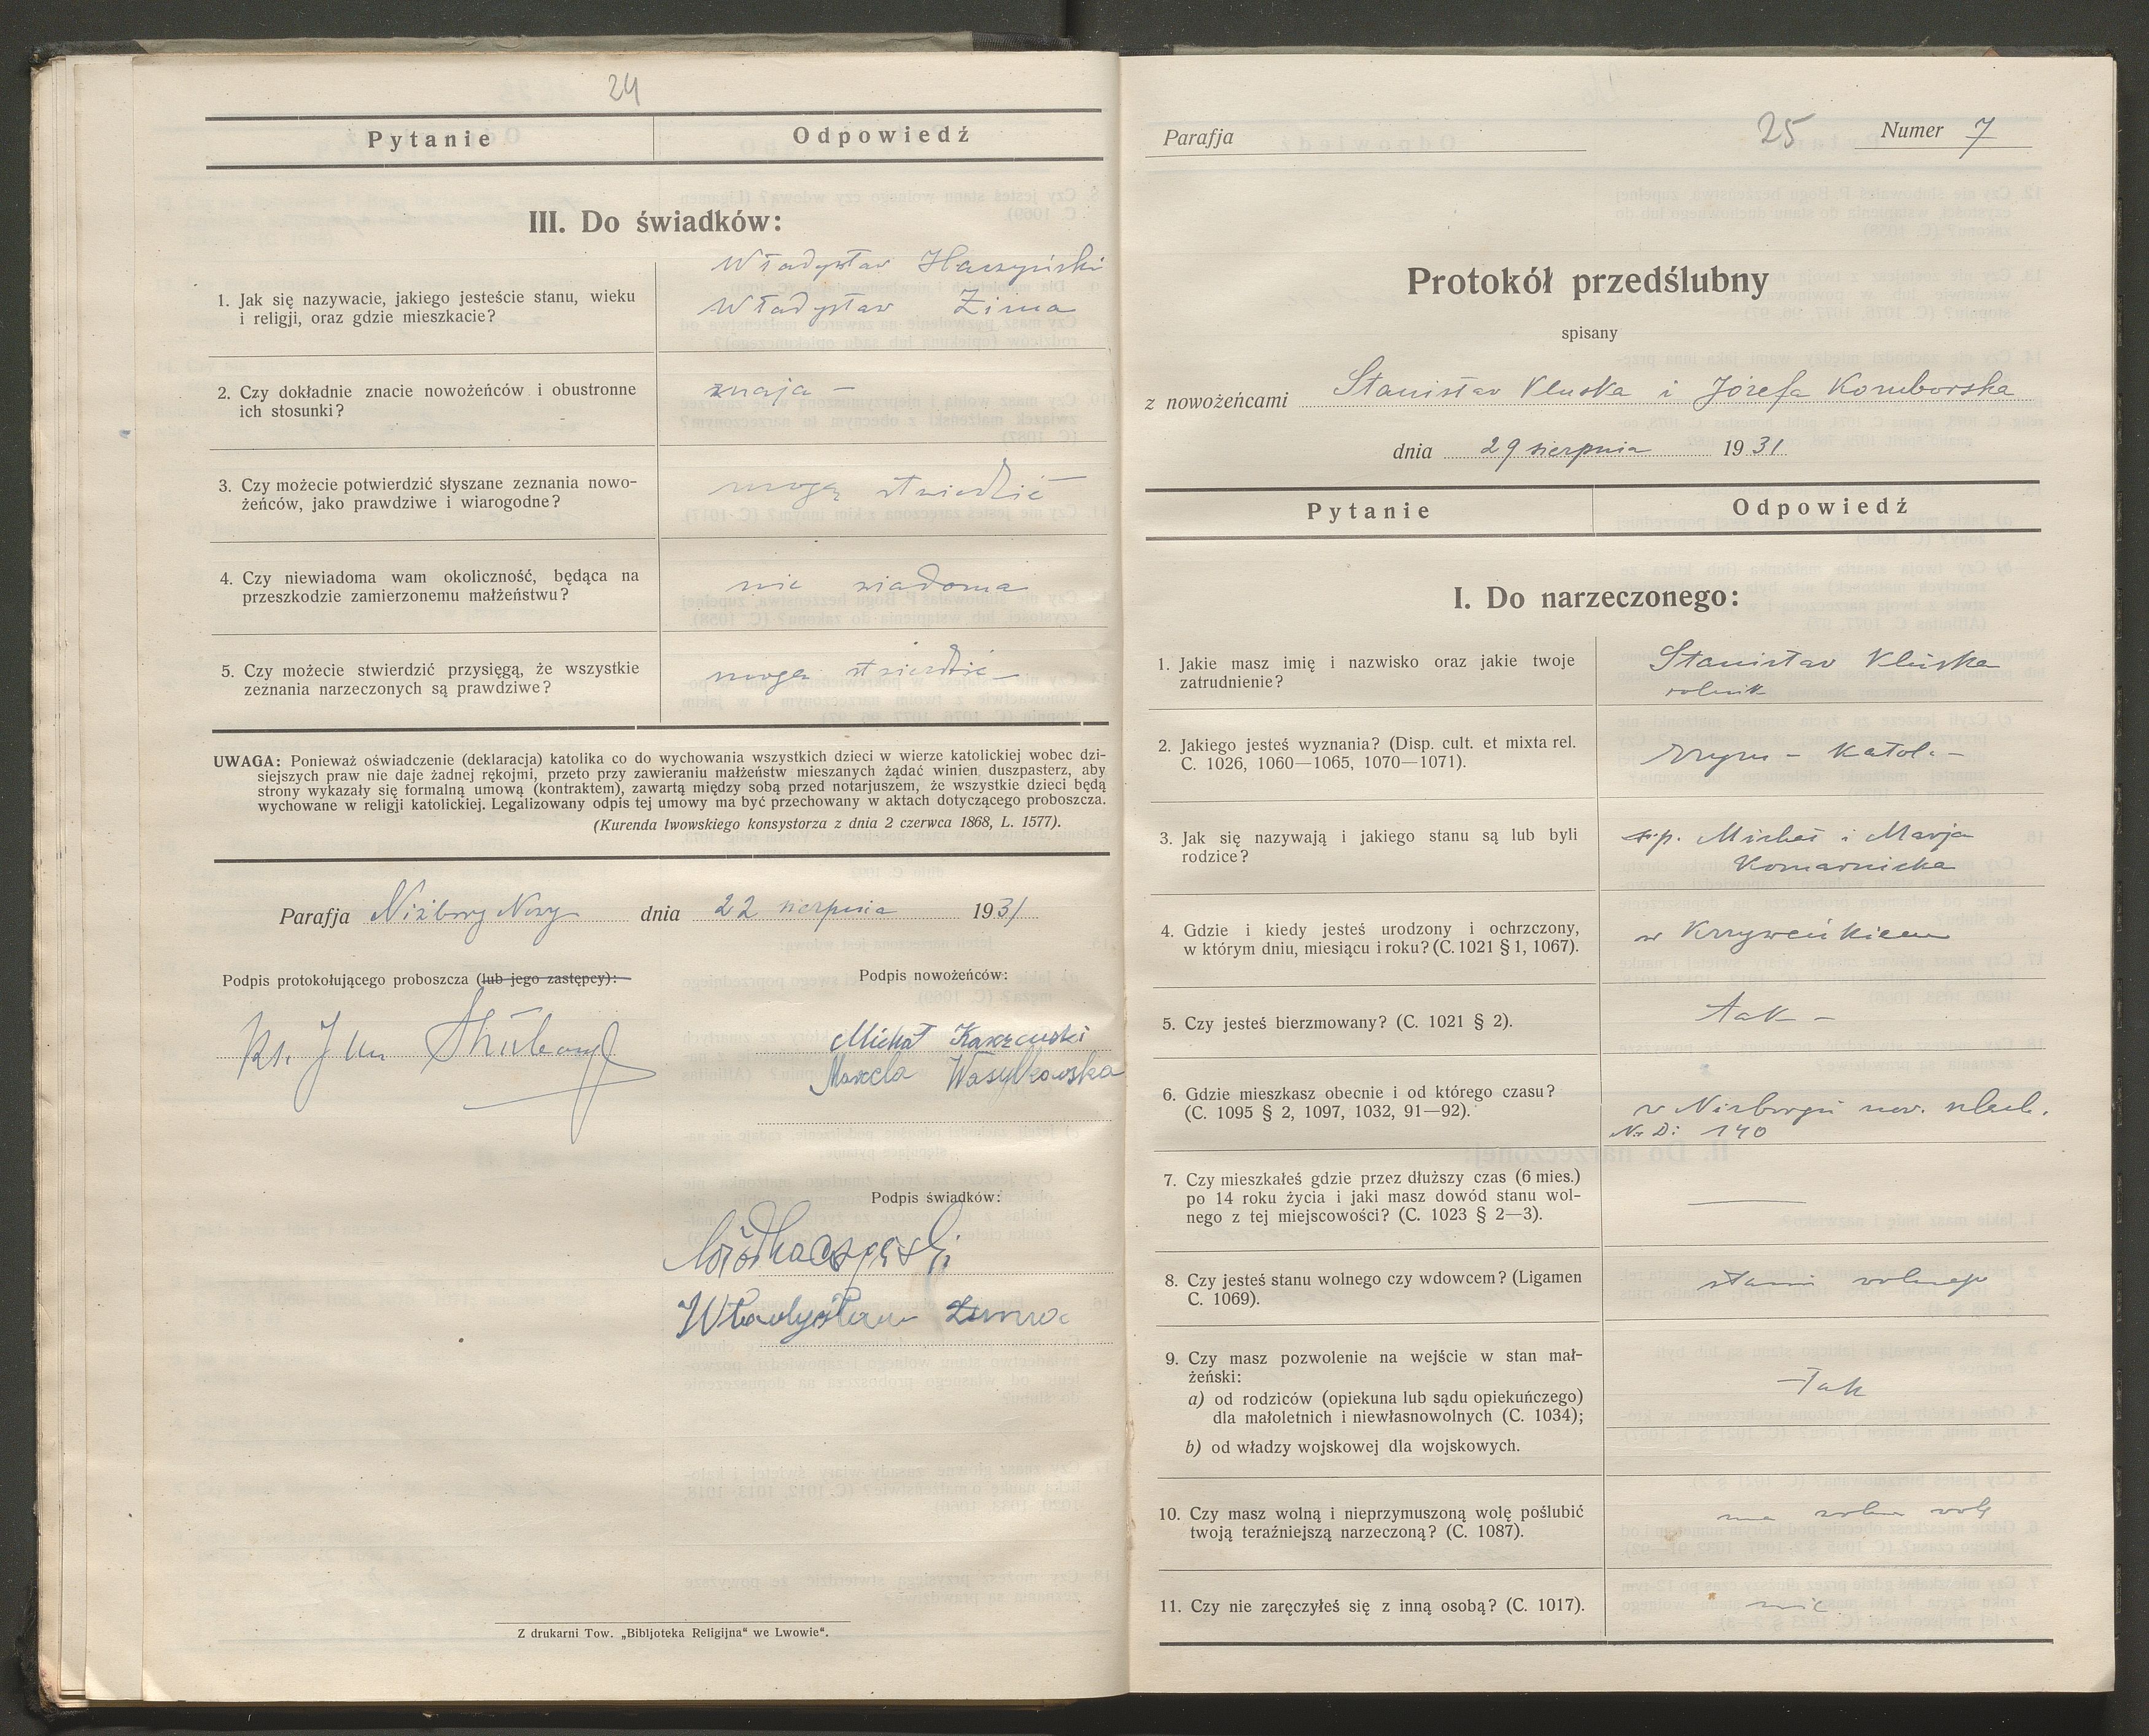 24
Pytanie
Odpowiedź
III. Do świadków:
Władysław Haczyński
1. Jak się nazywacie, jakiego jesteście stanu, wieku
i religji, oraz gdzie mieszkacie?
Władysław Zima
2. Czy dokładnie znacie nowożeńców i obustronne
ich stosunki?
znają –
3. Czy możecie potwierdzić słyszane zeznania nowo-
żeńców, jako prawdziwe i wiarogodne?
mogą stwierdzić
4. Czy niewiadoma wam okoliczność, będąca na
przeszkodzie zamierzonemu małżeństwu?
nie wiadoma
5. Czy możecie stwierdzić przysięgą, że wszystkie
zeznania narzeczonych są prawdziwe?
mogą stwierdzić –
UWAGA: Ponieważ oświadczenie (deklaracja) katolika co do wychowania wszystkich dzieci w wierze katolickiej wobec dzi-
siejszych praw nie daje żadnej rękojmi, przeto przy zawieraniu małżeństw mieszanych żądać winien duszpasterz, aby
strony wykazały się formalną umową (kontraktem), zawartą między sobą przed notarjuszem, że wszystkie dzieci będą
wychowane w religji katolickiej. Legalizowany odpis tej umowy ma być przechowany w aktach dotyczącego proboszcza.
(Kurenda lwowskiego konsystorza z dnia 2 czerwca 1868, L. 1577).
Parafja Niżborg Nowy dnia 22 sierpnia 1931
Podpis protokołującego proboszcza (lub jego zastępcy):
Podpis nowożeńców:
Ks. Jan
Michał
Marcela Wasylkowska
Podpis świadków:
Władysław Zima
Z drukarni Tow. „Bibljoteka Religijna“ we Lwowie“.
Parafja
25
Numer 7
Protokół przedślubny
spisany
z nowożeńcami Stanisław Kluska i Józefa Komborska
dnia 29 sierpnia 1931
Pytanie
Odpowiedź
I. Do narzeczonego:
1. Jakie masz imię i nazwisko oraz jakie twoje
zatrudnienie?
Stanisław Kluska
rolnik
2. Jakiego jesteś wyznania? (Disp. cult. et mixta rel.
C. 1026, 1060—1065, 1070—1071).
rzym – katol. –
3. Jak się nazywają i jakiego stanu są lub byli
rodzice?
ś.p. Michał i Marja
Komarnicka
4. Gdzie i kiedy jesteś urodzony i ochrzczony,
w którym dniu, miesiącu i roku? (C. 1021 § 1, 1067).
w Krzyweńkiem
5. Czy jesteś bierzmowany? (C. 1021 § 2).
tak –
6. Gdzie mieszkasz obecnie i od którego czasu?
(C. 1095 § 2, 1097, 1032, 91—92).
w Niżborgu now. szlach.
Nr D: 140
7. Czy mieszkałeś gdzie przez dłuższy czas (6 mies.)
po 14 roku życia i jaki masz dowód stanu wol-
nego z tej miejscowości? (C. 1023 § 2—3).
8. Czy jesteś stanu wolnego czy wdowcem? (Ligamen
C. 1069).
stanu wolnego
9. Czy masz pozwolenie na wejście w stan mał-
żeński:
a) od rodziców (opiekuna lub sądu opiekuńczego)
dla małoletnich i niewłasnowolnych (C. 1034);
b) od władzy wojskowej dla wojskowych.
tak
10. Czy masz wolną i nieprzymuszoną wolę poślubić
twoją teraźniejszą narzeczoną? (C. 1087).
ma wolną wolę
11. Czy nie zaręczyłeś się z inną osobą? (C. 1017).
nie